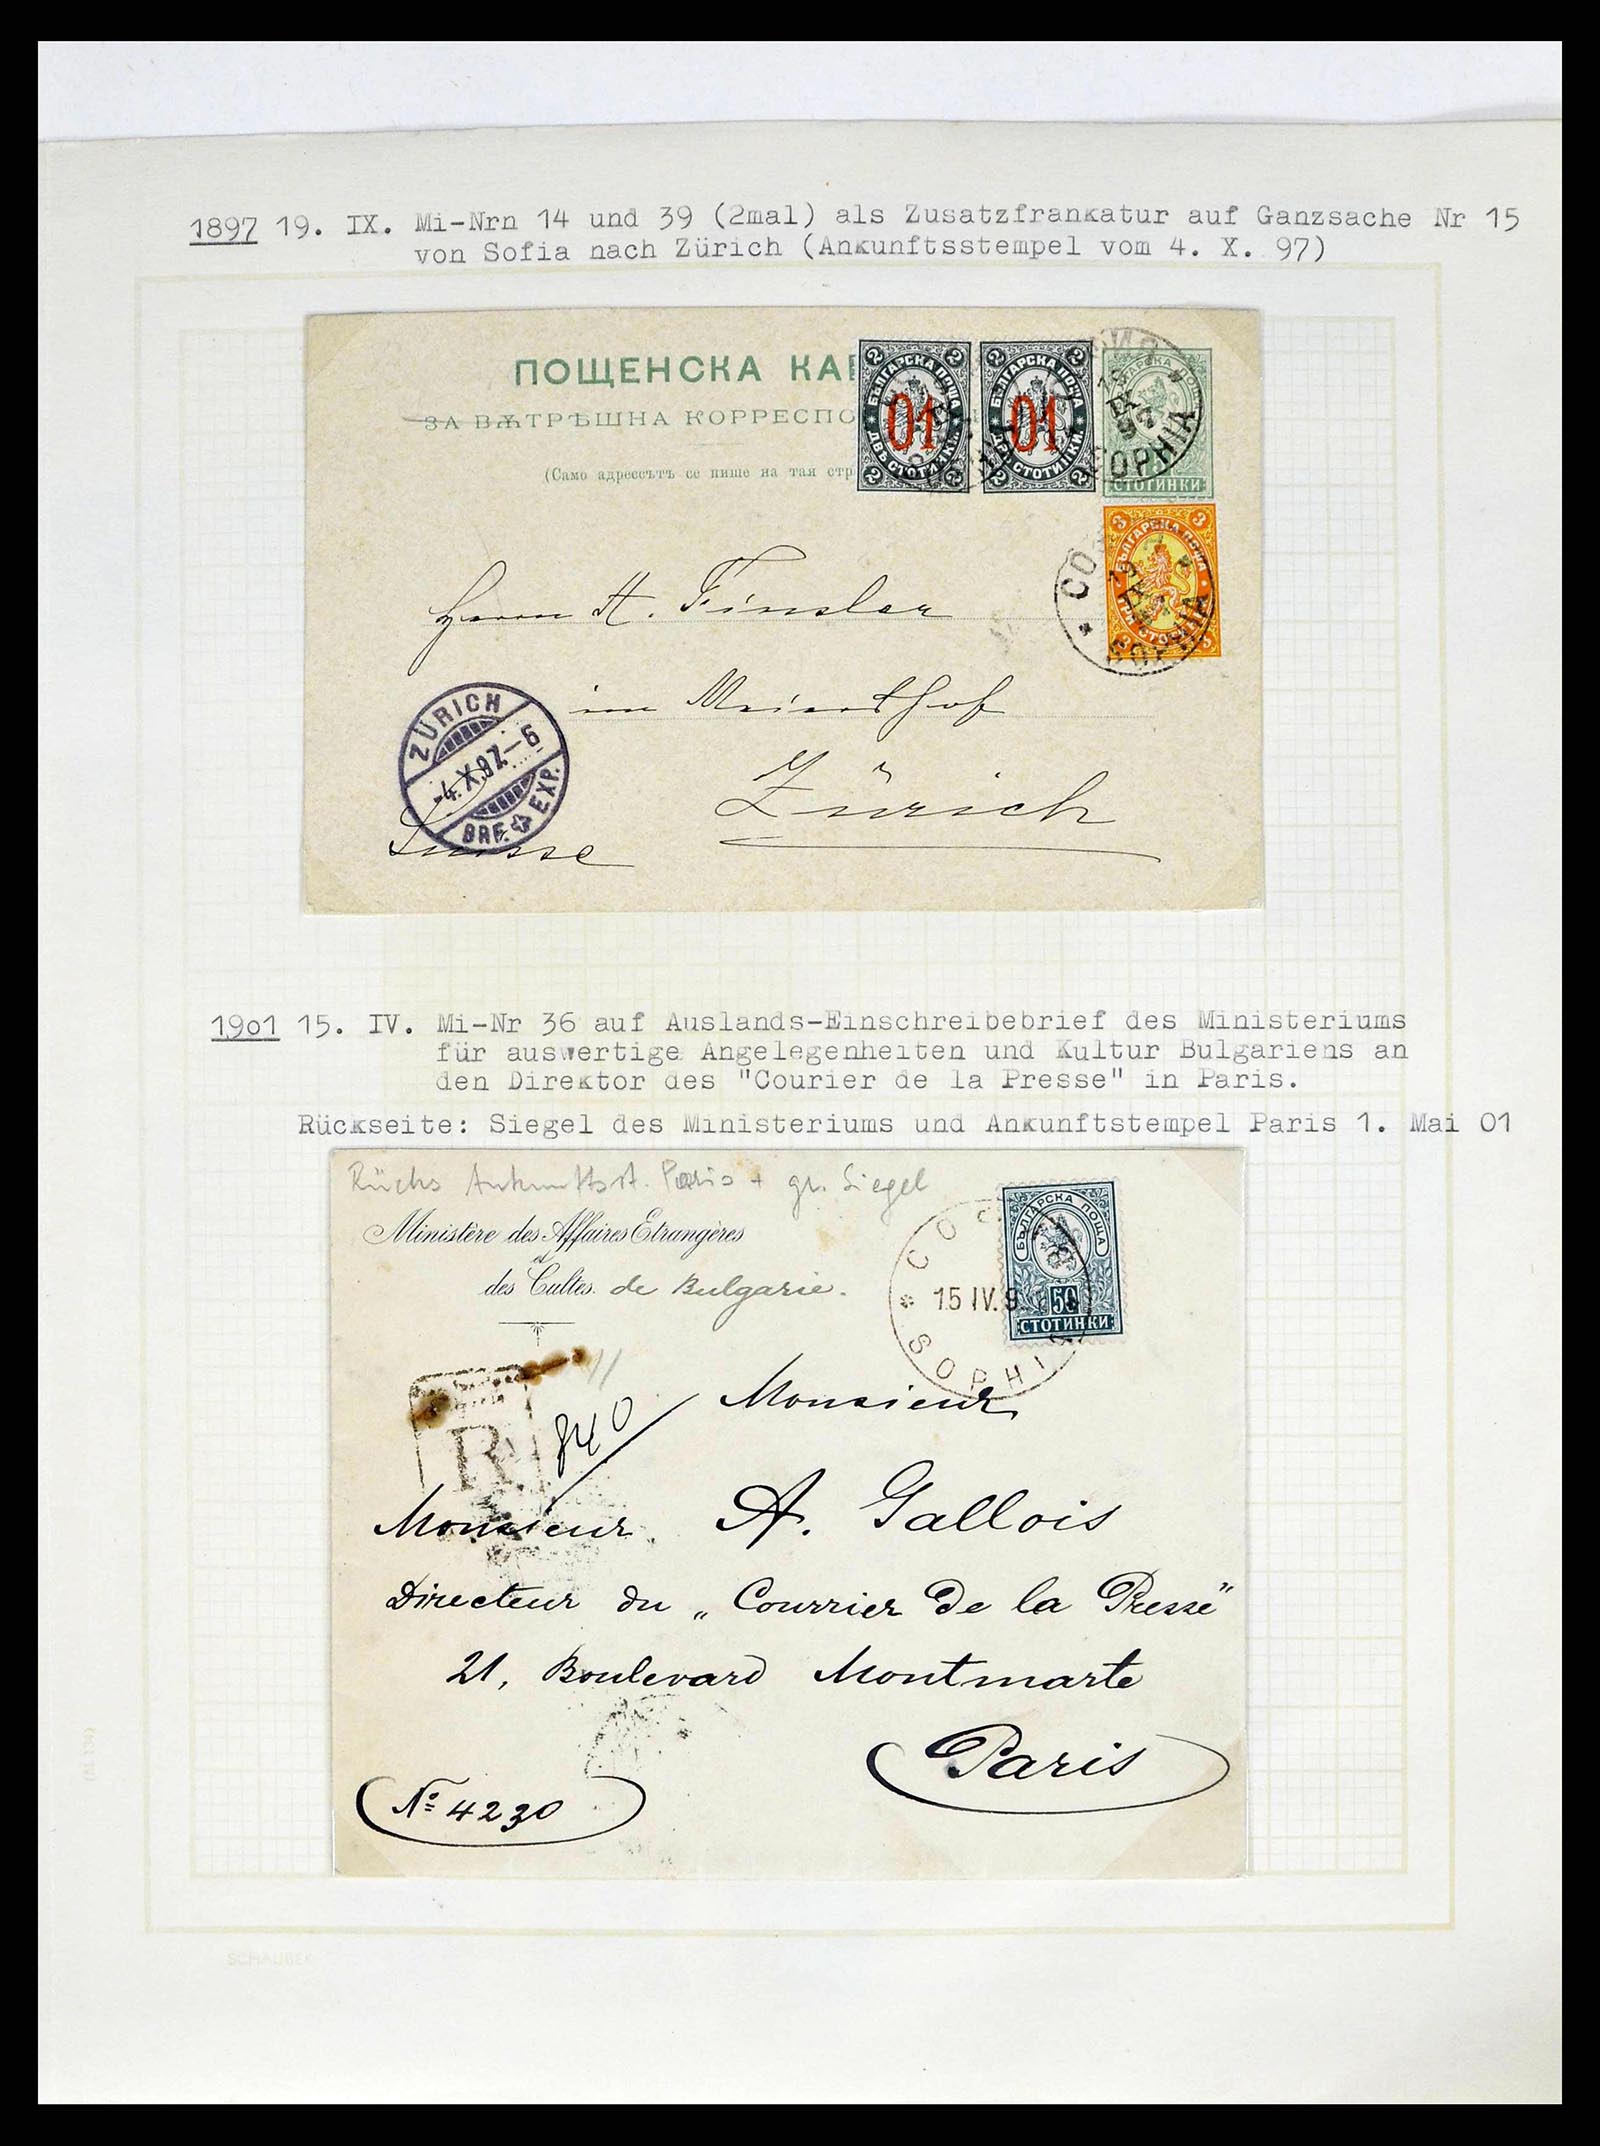 1897 19. IX. Mi-Nrn 14 und 39 (2mal) als Zusatzfrankatur auf Ganzsache Nr 15
von Sofia nach Zürich (Ankunftsstempel vom 4. X. 97)
ПОЩЕНСКА
ЗА ВѪТРѢШНА
(Само адрессътъ се пише на тая
2 2
БЪЛГАРСКА ПОЩА
01
ДВѢ СТОТИНКИ.
2 2
2 2
БЪЛГАРСКА ПОЩА
01
ДВѢ СТОТИНКИ.
2 2
СТОТИНКИ
3 3
БЪЛГАРСКА ПОЩА
ТРИ
Herrn A. Finsler
im Meiershof
Zürich
Suisse
ZÜRICH
-4.X.97.-6
BRF. EXP.
1901 15. IV. Mi-Nr 36 auf Auslands-Einschreibebrief des Ministeriums
für auswertige Angelegenheiten und Kultur Bulgariens an
den Direktor des "Courier de la Presse" in Paris.
Rückseite: Siegel des Ministeriums und Ankunftstempel Paris 1. Mai 01
Rücks Ankunftsst. Paris + gr. Siegel
Ministère des Affaires Etrangères
et
des Cultes. de Bulgarie.
БЪЛГАРСКА ПОЩА
50
СТОТИНКИ
15 IV.
SOPHI
R
840
Monsieur
Monsieur A. Gallois
Directeur du „Courrier de la Presse"
21, Boulevard Montmarte
Paris
№ 4230
SCHAUBEK